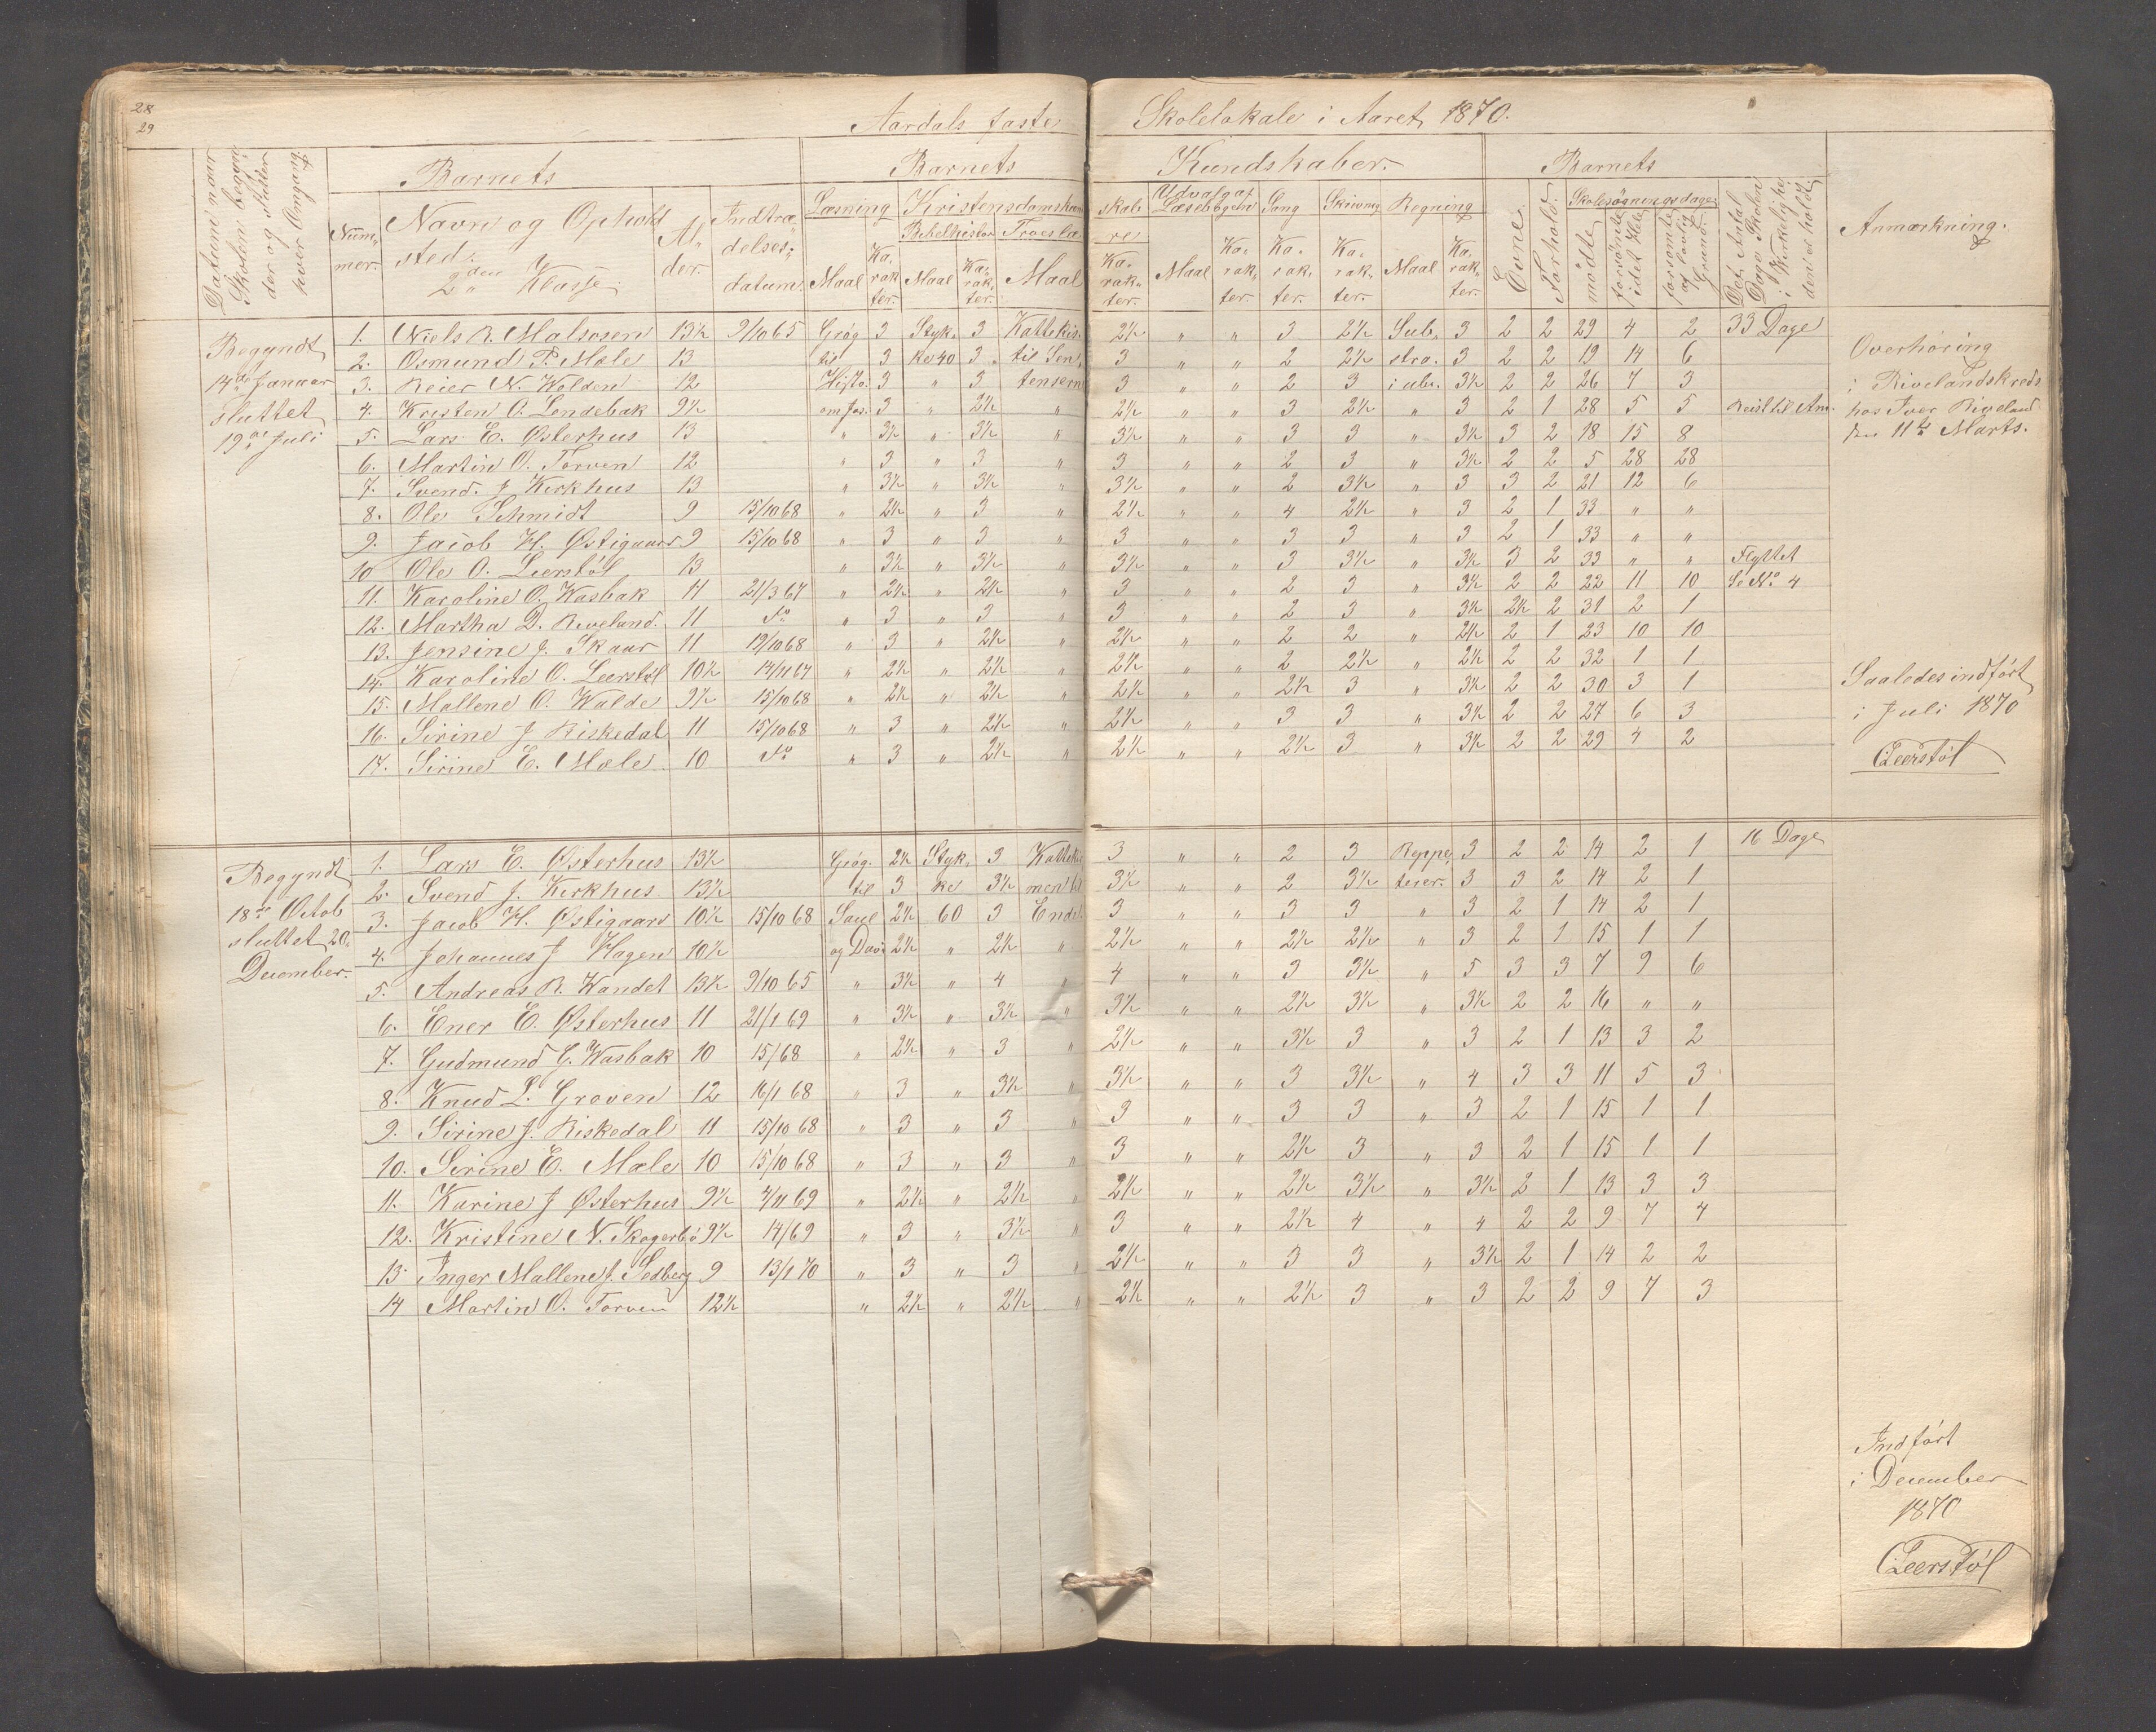 28
29
Aardals faste Skolelokale i Aaret 1870.
Datum naar Skolen begynder og slutter hver Omgang
Barnets
Barnets Kundskaber.
Barnets
Anmærkning.
Nummer.
Navn og Opholdsted.
2den Klasse
Alder.
Indtrædelsesdatum.
Læsning
Kristendomskundskab
Bibelhistor
Troeslære
Udvalgat Læsebogen
Sang
Skrivning
Regning
Maal
Karakter.
Evne.
Forhold.
Skolesøgningsdage
mødte
forsømte idet Hele
forsømte af lovlig Grund
Det Antal Dage Skolen i Virkeligheden er holdt.
Begyndt 14de Januar sluttet 19de Juli
1. Niels R. Malsosen 13½ 9/10 65 Geog 3 Styk- 3 Kattekis- 2½ " " 3 2½ Sub- 3 2 2 29 4 2 33 Dage
2. Osmund P. Mæle 13 til 3 ke 40 3 til Sen- 3 " " 2 2½ stra. 3 2 2 19 14 6
3. Reier N. Wolden 12 Histo. 3 " 3 tensern 3 " " 2 3 i ube. 3½ 2 2 26 7 3
4. Kristen O. Lendebak 9½ om Jos. 3 " 2½ " 2½ " " 3 2½ " 3 2 1 28 5 5 Reist til Am.
5. Lars E. Østerhus 13 " 3½ " 3½ " 3½ " " 3 3 " 3½ 3 2 18 15 8
6. Martin O. Torven 12 " 3 " 3 " 3 " " 2 3 " 3½ 2 2 5 28 28
7. Svend. J Kirkhus 13 " 3½ " 3½ " 3½ " " 2 3½ " 3 3 2 21 12 6
8. Ole Schmidt 9 15/10 68 " 2½ " 3 " 2½ " " 4 2½ " 3 2 1 33 " "
9. Jacob H. Østigaard 9 15/10 68 " 3 " 3 " 3 " " 3 3 " 3 2 1 33 " "
10 Ole O. Leerstøl 13 " 3½ " 3½ " 3½ " " 3 3½ " 3½ 3 2 33 " " Flyttet
11. Karoline O. Wasbak 14 21/3 67 " 2½ " 2½ " 3 " " 2 3 " 3½ 2 2 22 11 10 Se No 4
12. Martha D. Riveland. 11 do " 3 " 3 " 3 " " 2 3 " 3½ 2½ 2 31 2 1
13. Jensine J. Skaar 11 19/10 68 " 3 " 2½ " 2½ " " 2 2 " 2½ 2 1 23 10 10
14. Karoline O. Leerstøl 10½ 14/11 67 " 2½ " 2½ " 2½ " " 2 2½ " 2½ 2 2 32 1 1
15. Mallene O. Walde 9½ 15/10 68 " 2½ " 2½ " 2½ " " 2½ 3 " 3½ 2 2 30 3 1
16. Sirine J Riskedal 11 15/10 68 " 3 " 2½ " 2½ " " 3 3 " 3½ 2 2 27 6 3
17. Sirine E. Mæle 10 do " 3 " 2½ " 2½ " " 2½ 3 " 3½ 2 2 29 4 2
Overhøring
i Rivelandskreds
hos Iver Riveland
den 11te Marts.
Saaledes indført
i Juli 1870
Leerstøl
Begyndt 18de Octob sluttet 20. December.
1. Lars E. Østerhus 13½ Geog. 2½ Styk- 3 Kattekis 3 " " 2 3 Reppe- 3 2 2 14 2 1 16 Dage
2. Svend J. Kirkhus 13½ til 3 ke 3½ men til 3½ " " 2 3½ terer. 3 3 2 14 2 1
3. Jacob H. Østigaard 10½ 15/10 68 Saul 2½ 60 3 Endel. 3 " " 3 3 " 3 2 1 14 2 1
4. Johannes J Hagen 10½ og Dav. 2½ " 2½ " 2½ " " 2½ 2½ " 3 2 1 15 1 1
5. Andreas R. Wandet 13½ 9/10 65 " 3½ " 4 " 4 " " 3 3½ " 5 3 3 7 9 6
6. Ener E. Østerhus 11 21/1 69 " 3½ " 3½ " 3½ " " 2½ 3½ " 3½ 2 2 16 " "
7. Gudmund G. Wasbak 10 15/68 " 2½ " 3 " 2½ " " 3½ 3 " 3 2 1 13 3 2
8. Knud L. Groven 12 16/1 68 " 3 " 3½ " 3½ " " 3 3½ " 4 3 3 11 5 3
9. Sirine J. Riskedal 11 15/10 68 " 3 " 3 3 " " 3 3 " 3 2 1 15 1 1
10. Sirine E. Mæle 10 15/10 68 " 3 " 3 " 3 " " 2½ 3 " 3 2 1 15 1 1
11. Karine J Østerhus 9½ 4/11 69 " 2½ " 2½ " 2½ " " 2½ 3½ " 3½ 2 1 13 3 3
12. Kristine N. Skogerbø 9½ 14/69 " 3 " 3½ " 3 " " 2½ 4 " 4 2 2 9 7 4
13. Inger Mallene J. Sedberg 9 13/1 70 " 3 " 3 " 2½ " " 3 3 " 3½ 2 1 14 2 2
14 Martin O. Torven 12½ " 2½ " 2½ " 2½ " " 2½ 3 " 3 2 2 9 7 3
Indført
i December
1870
Leerstøl